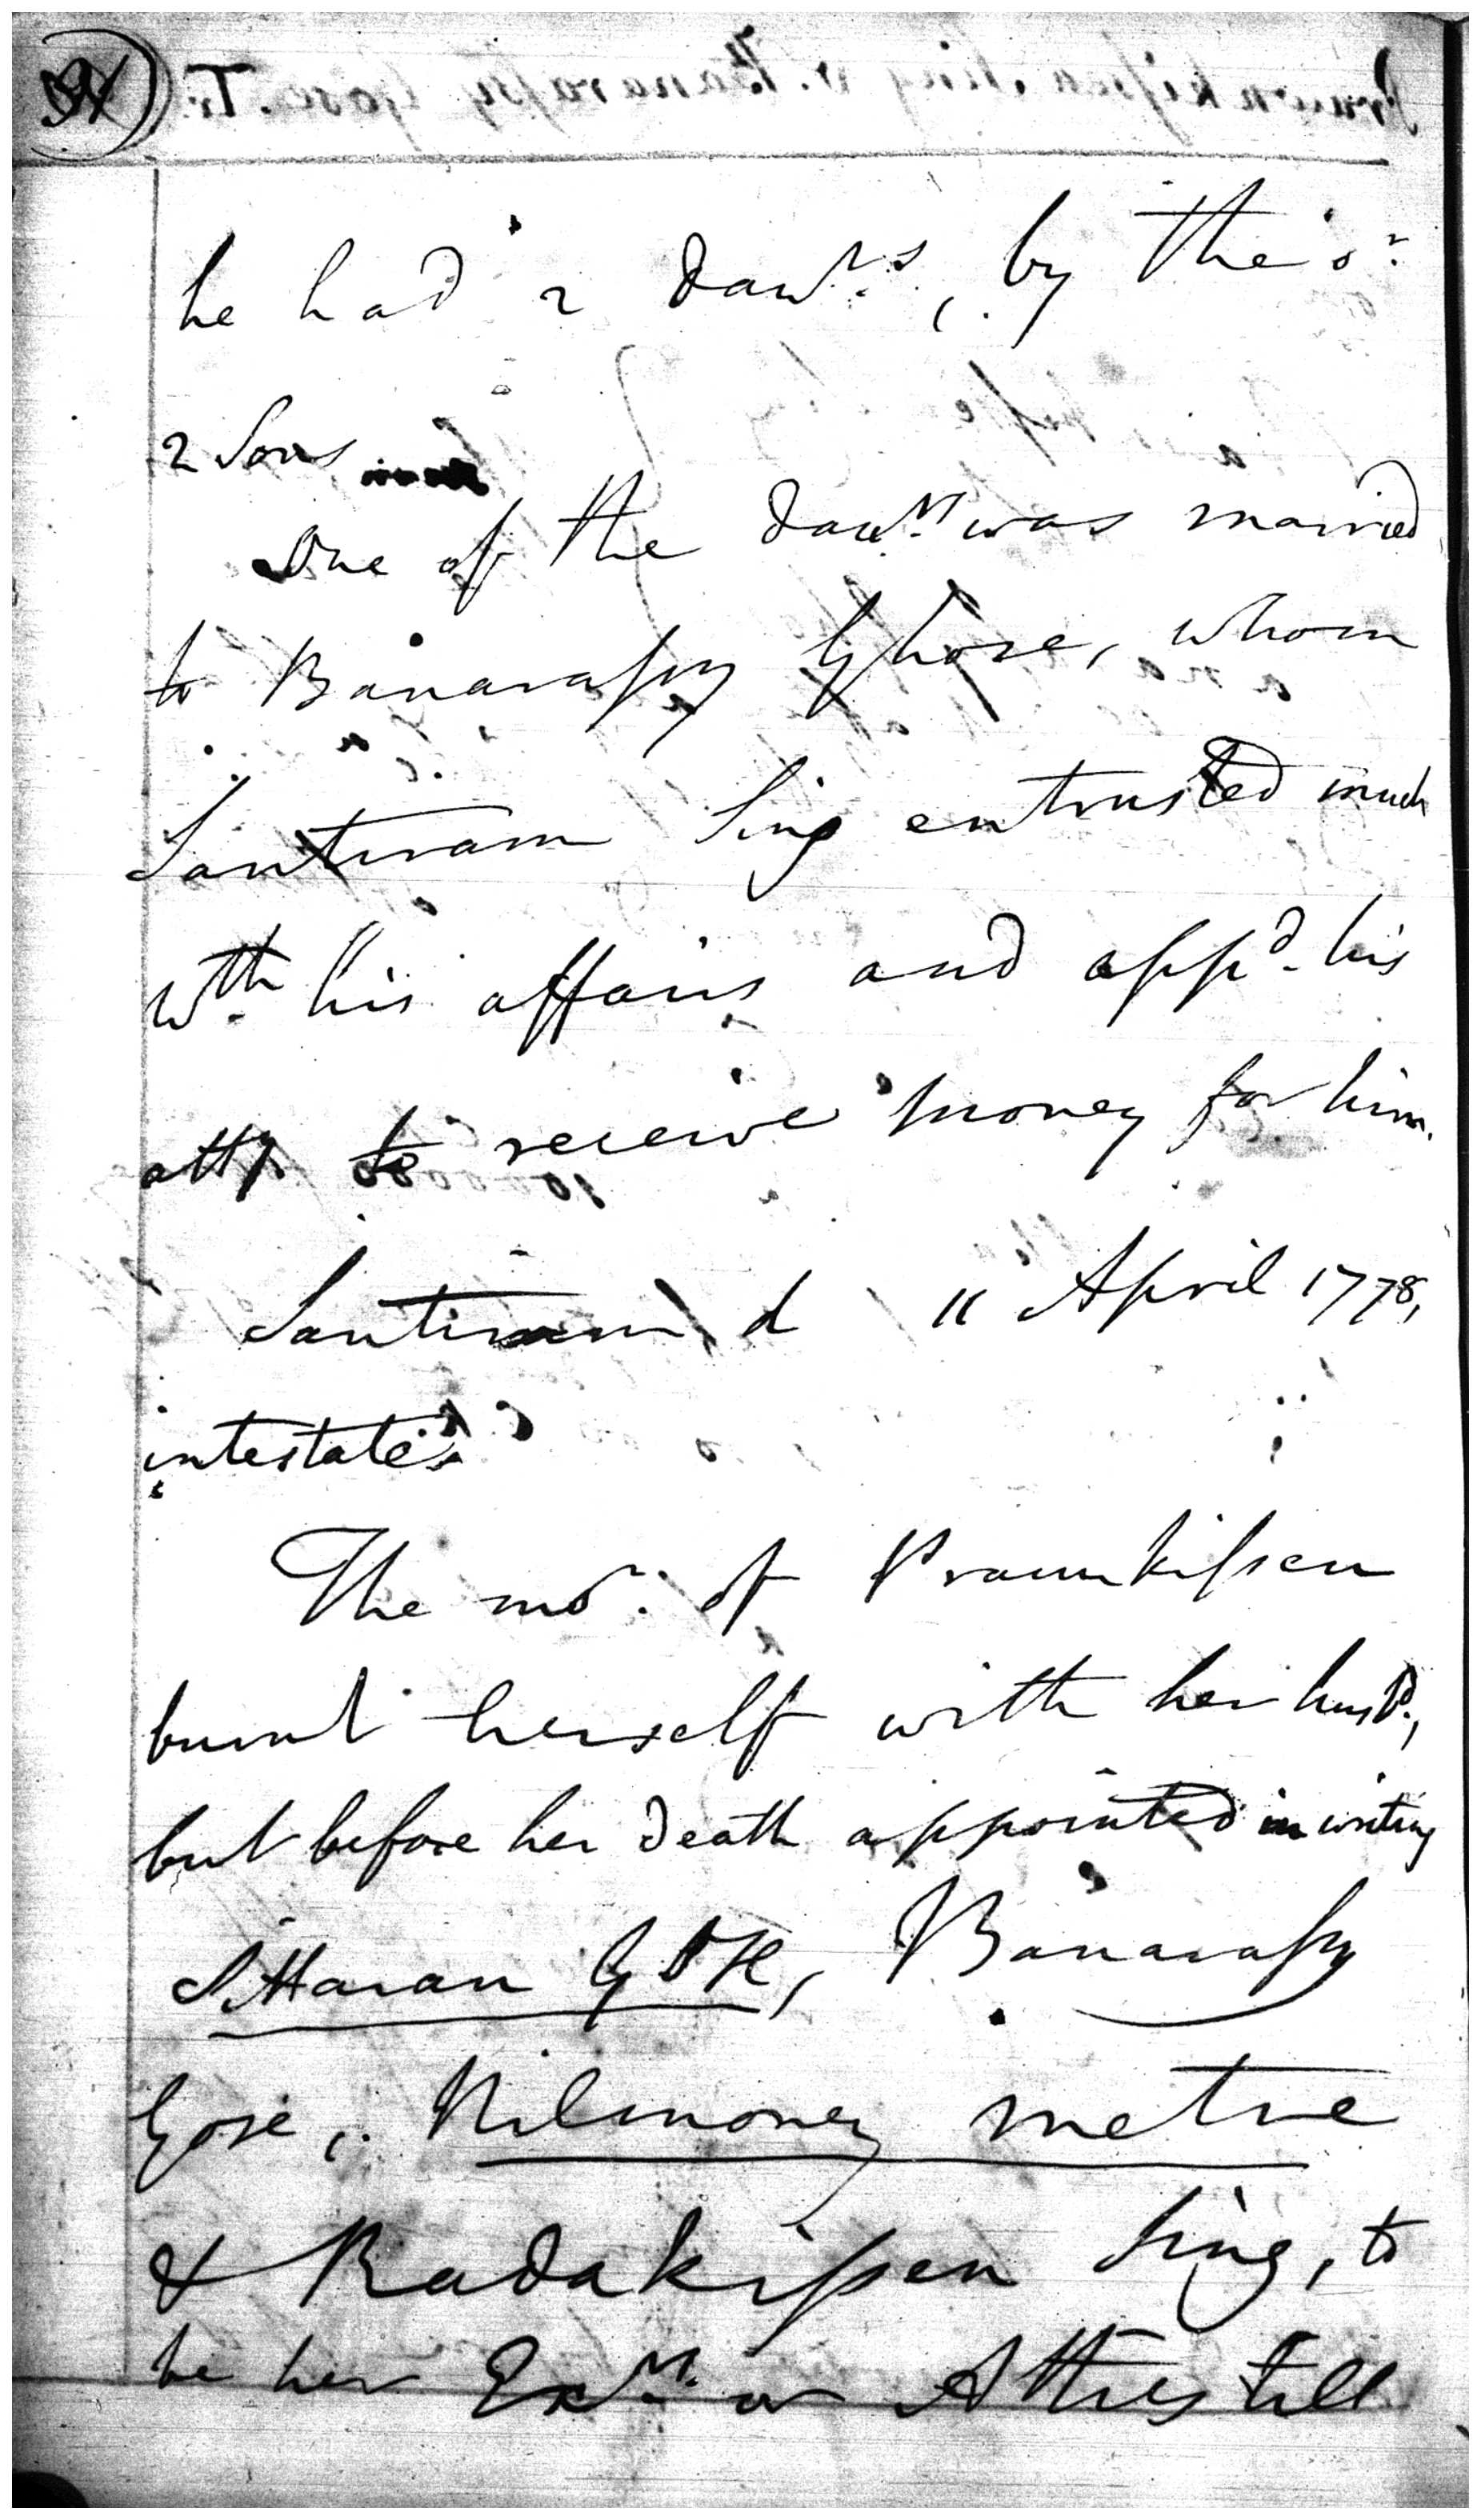 he had 2 dawrs, by the or
2 Sons
One of the dawrs was married
to Banarassy Ghose, whom
Santiram Sing entrusted much
wth his affairs and appd his
atty to receive money for him.
Santiram d 11 April 1778,
intestate.
The mor. of Prawnkissen
burnt herself with her husbd,
but before her death appointed in writing
Gose, Banarassy
Gose, Nilmoney metre
& Radakissen Sing, to
be her Exrs. or Atties till